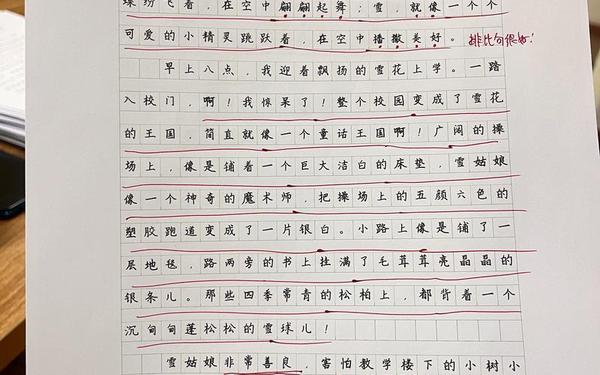 蝶纷飞着，在空中翩翩起舞；雪，就像一个个
可爱的小精灵跳跃着，在空中播撒美好。 排比句很好！
早上八点，我迎着飘扬的雪花上学。一踏
入校门，啊！我惊呆了！整个校园变成了雪花
的王国，简直就像一个童话王国啊！广阔的操
场上，像是铺着一个巨大洁白的床垫，雪姑娘
像一个神奇的魔术师，把操场上的五颜六色的
塑胶跑道变成了一片银白。小路上像是铺了一
层地毯，路两旁的书上挂满了毛茸茸亮晶晶的
银条儿。那些四季常青的松柏上，都背着一个
沉甸甸蓬松松的雪球儿！
雪姑娘非常善良，害怕教学楼下的小树小